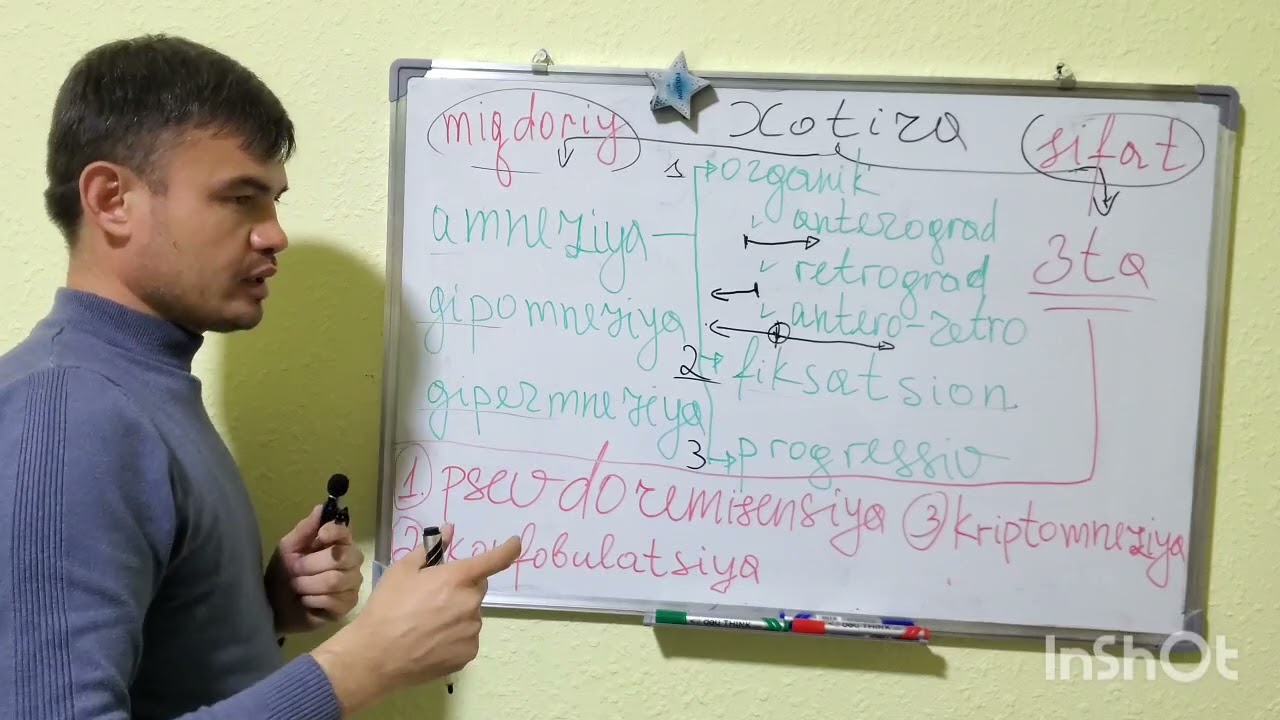 xotira
miqdoriy
sifat
1 organik
anterograd
amneziya
retrograd
3ta
gipomneziya
antero-retro
2 fiksatsion
gipermneziya
3 progressiv
1. psevdoremisensiya
3 kriptomneziya
2. konfobulatsiya
InShOt